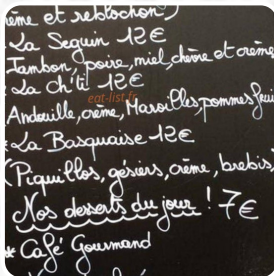 ème et reblochon)
. La Seguin 12€
Jambon, poire, miel, chèvre et crème
. La ch'ti 12€
eat-list.fr
Andouille, crème, Maroilles, pommes frui
* La Basquaise 12€
(Piquillos, gésiers, crème, brebis
Nos desserts du jour ! 7€
* Café Gourmand